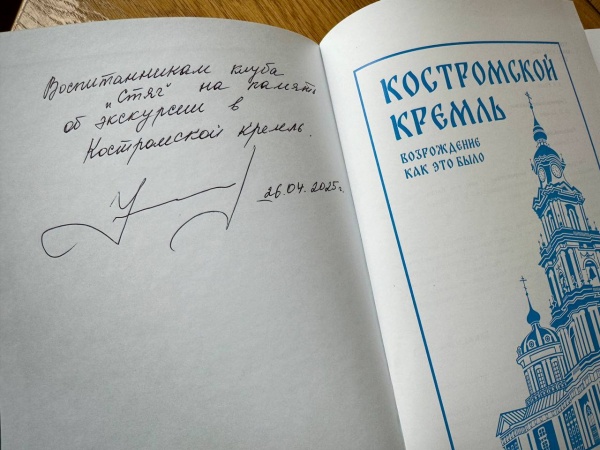 Воспитанникам клуба
"Стяг" на память
об экскурсии в
Костромской кремль.
26.04.2025г.
КОСТРОМСКОЙ
КРЕМЛЬ
ВОЗРОЖДЕНИЕ
КАК ЭТО БЫЛО